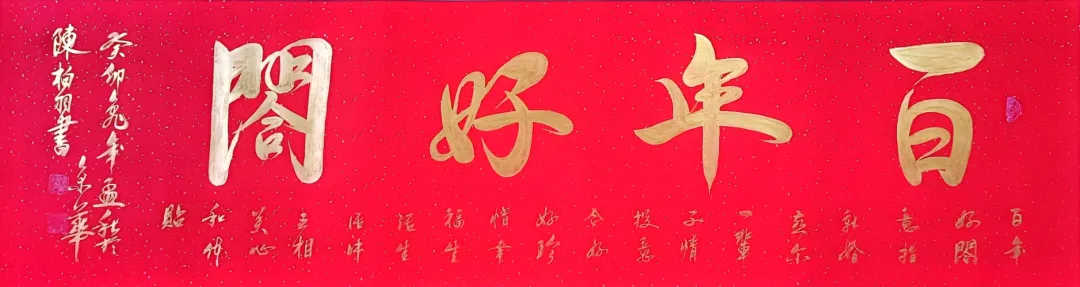 百年好閤
百年
好閤
意指
新婚
一輩
子情
投意
合好
好珍
惜幸
福生
活生
互相
关心
和体
貼
癸卯兔年孟秋於
京華
陳杨羽書